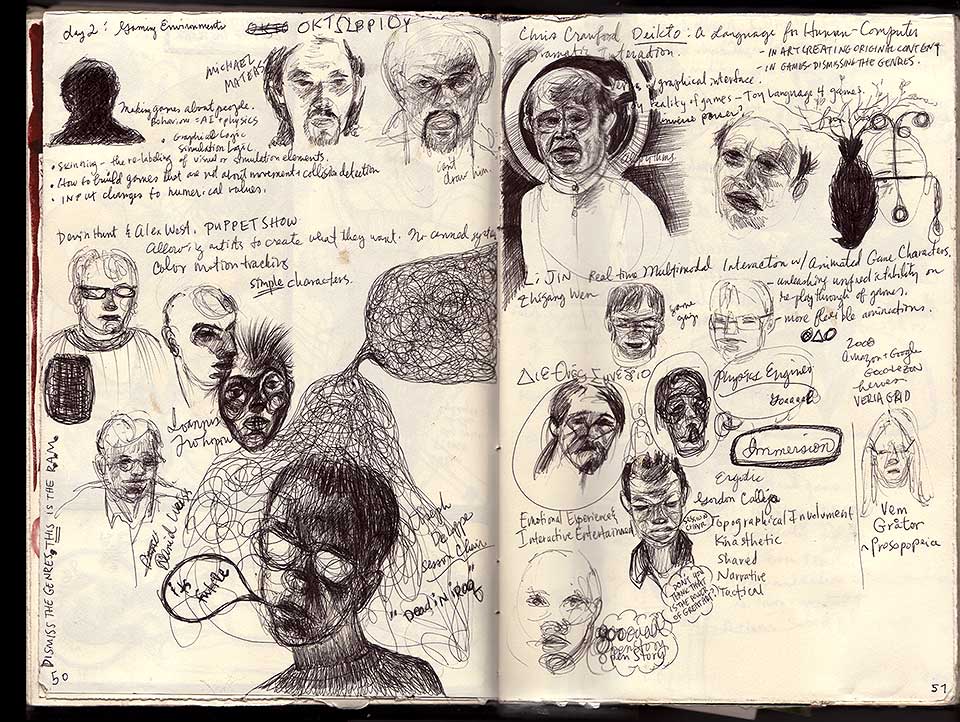 day 2: Gaming Environments
ΟΚΤΩΒΡΙΟΥ
MICHAEL
MATEAS
Making games about people.
Behavior = AI + physics
• Graphical Logic
Simulation Logic
• Skinning – the re-labeling of visual or simulation elements.
• How to build games that are not about movement + collision detection
• INPUT changes to numerical values.
can't
draw him.
Devin Hunt & Alex West, PUPPET SHOW
Allowing artists to create what they want. No canned
Color motion tracking
simple characters.
Blind
it's
futile
Joseph
Delappe
session chair
"Dead in Iraq"
DISMISS THE GENRES, THIS IS THE
50
Chris Crawford Deikto: A Language for Human-Computer
Dramatic Interaction.
- IN ART CREATING ORIGINAL CONTENT
- IN GAMES DISMISSING THE GENRES.
graphical interface.
reality of games – Toy Language 4 games.
algorythms
Li JIN Real time Multimodal Interaction w/ Animated Game Characters.
Zhigang Wen
same
guy
- unleashing unpredictability on
re-playthrough of games.
- more flexible animations.
2008
Amazon + Google
Googlezon
VERIA GRID
Physics Engines
Immersion
Ergodic
Gordon Calleja
Emotional Experience &
Interactive Entertainment
SESSION
CHAIR
Topographical Involvment
Kinasthetic
Shared
Narrative
Tactical
DON'T YOU
THINK THAT
IS THE POWER
OF GREAT ART?
Vem
Gråtor
~ Prosopopeia
51